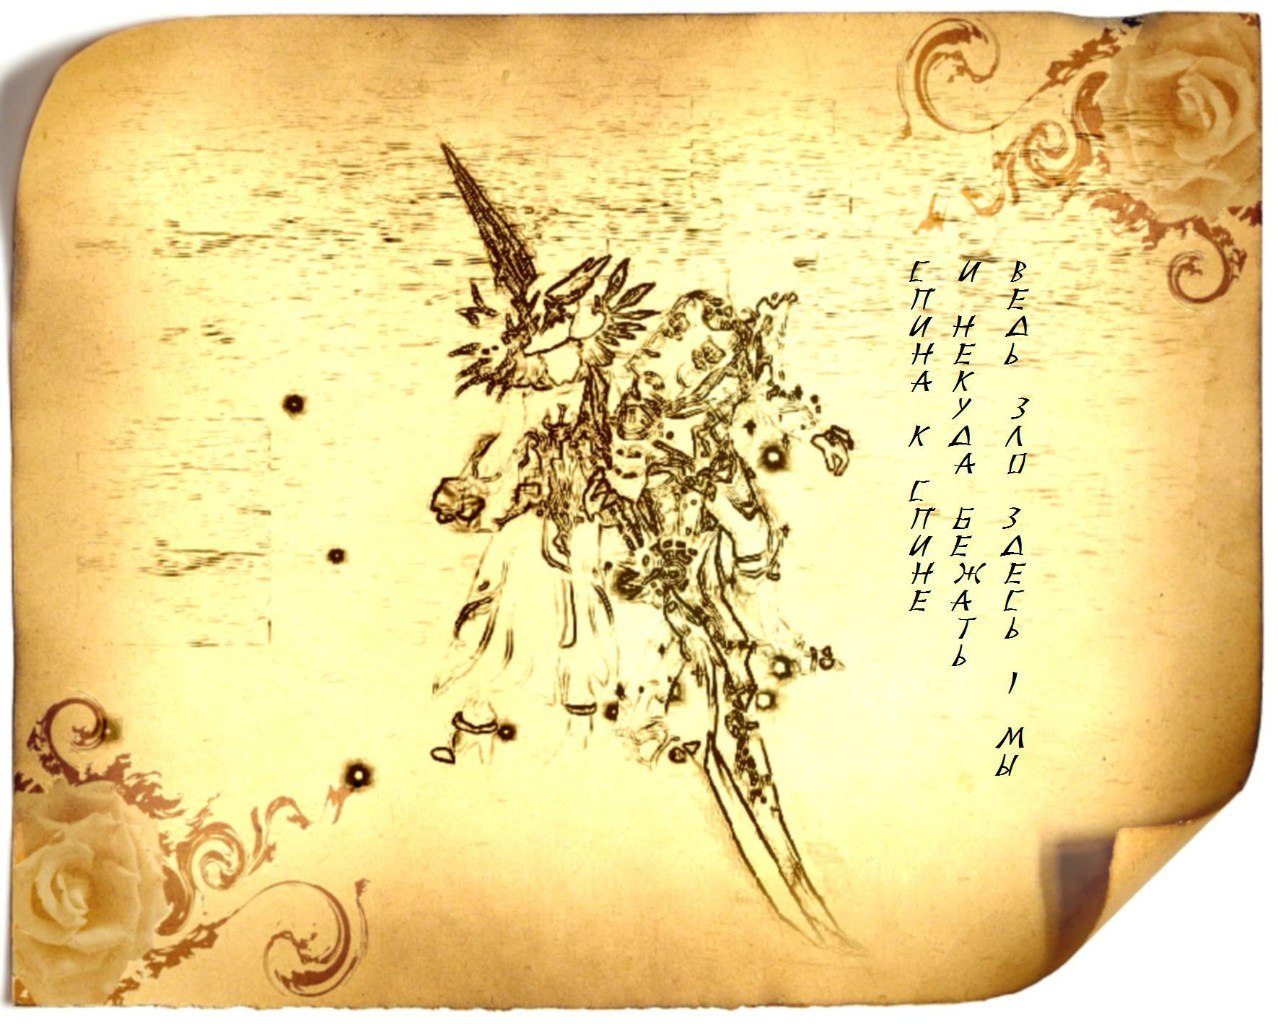 СПИНА К СПИНЕ
И НЕКУДА БЕЖАТЬ
ВЕДЬ ЗЛО ЗДЕСЬ - МЫ